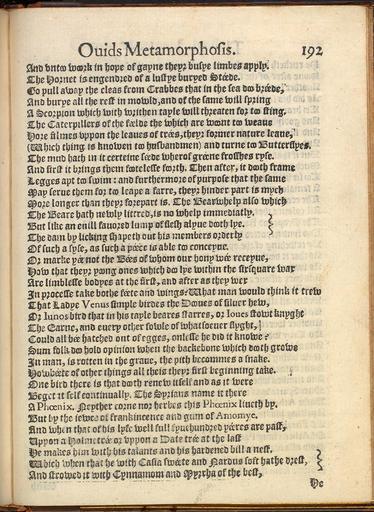 Ouids Metamorphosis. 192
And vnto woork in hope of gayne theyr busye limbes apply.
The Hornet is engendred of a lustye buryed Steede.
Go pull away the cleas from Crabbes that in the sea doo breede,
And burye all the rest in mowld, and of the same will spring
A Scorpion which with writhen tayle will threaten for to sting.
The Caterpillers of the feelde the which are woont to weaue
Hore filmes vppon the leaues of trees, theyr former nature leaue,
(Which thing is knowen to husbandmen) and turne to Butterflyes.
The mud hath in it certeine seede wherof greene frosshes ryse.
And first it brings them footelesse foorth. Then after, it dooth frame
Legges apt to swim: and furthermore of purpose that the same
May serue them for to leape a farre, theyr hinder part is mych
More longer than theyr forepart is. The Bearwhelp also which
The Beare hath newly littred, is no whelp immediatly.
But like an euill fauored lump of flesh alyue dooth lye.
The dam by licking shapeth out his members orderly
Of such a syse, as such a peece is able to conceyue.
Or marke yee not the Bees of whom our hony wee receyue,
How that theyr yoong ones which doo lye within the sixsquare wax
Are limblesse bodyes at the first, and after as they wex
In processe take bothe feete and wings? What man would think it trew
That Ladye Venus simple birdes the Dooues of siluer hew,
Or Iunos bird that in his tayle beares starres, or Ioues stowt knyght
The Earne, and euery other fowle of whatsoeuer flyght,
Could all bee hatched out of egges, onlesse he did it knowe?
Sum folk doo hold opinion when the backebone which dooth growe
In man, is rotten in the graue, the pith becommes a snake.
Howbeete of other things all theis theyr first beginning take.
One bird there is that dooth renew itself and as it were
Beget it self continually. The Syrians name it there
A Phœnix. Neyther corne nor herbes this Phœnix liueth by,
But by the iewce of frankincence and gum of Amomye.
And when that of his lyfe well full fyuehundred yeeres are past,
Vppon a Holmetree or vppon a Date tree at the last
He makes him with his talants and his hardened bill a nest.
Which when that he with Casia sweete and Nardus soft hathe drest,
And strowed it with Cynnamom and Myrrha of the best,
He